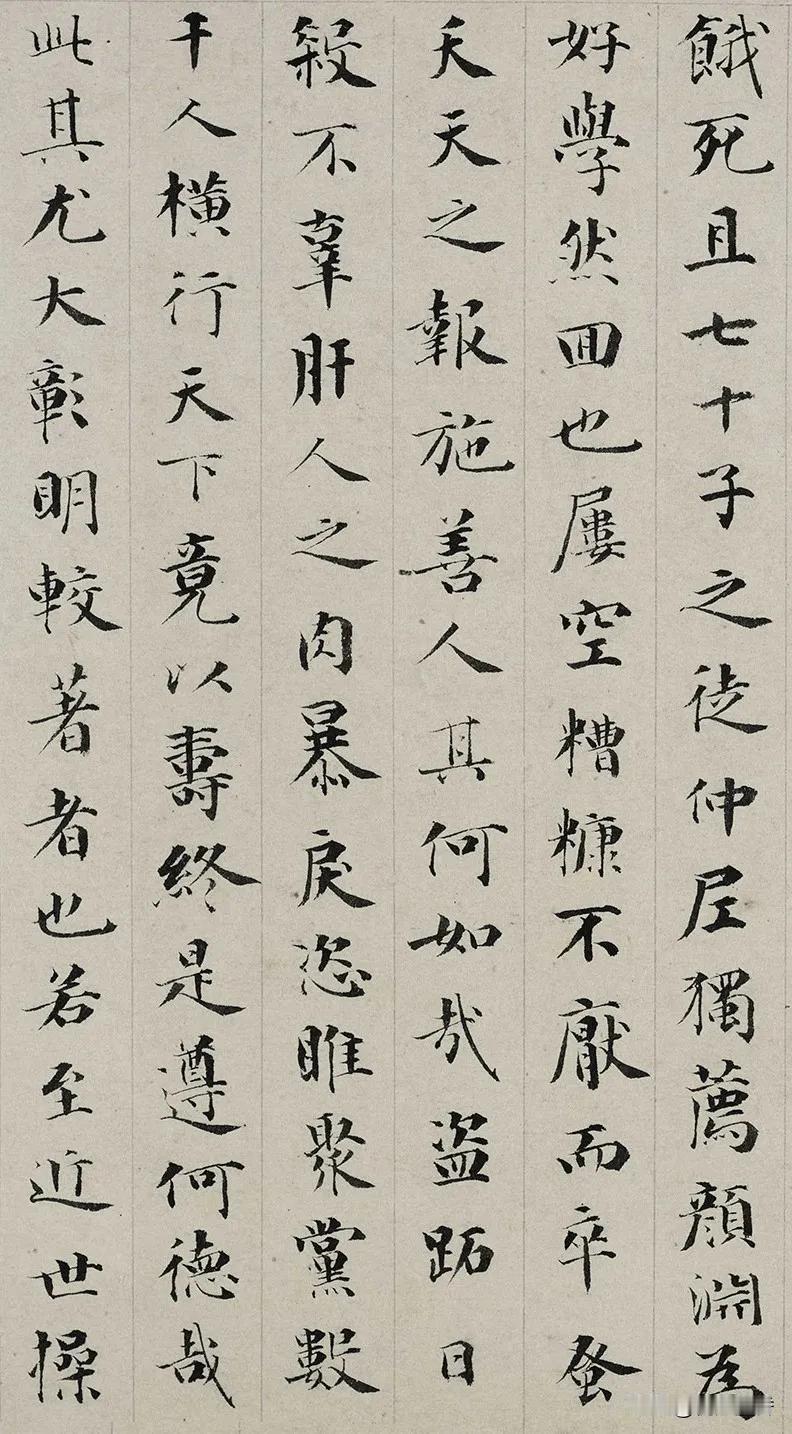 餓死且七十子之徒仲尼獨薦顏淵為
好學然回也屢空糟糠不厭而卒蚤
夭天之報施善人其何如哉盜跖日
殺不辜肝人之肉暴戾恣睢聚黨數
千人橫行天下竟以壽終是遵何德哉
此其尤大彰明較著者也若至近世操